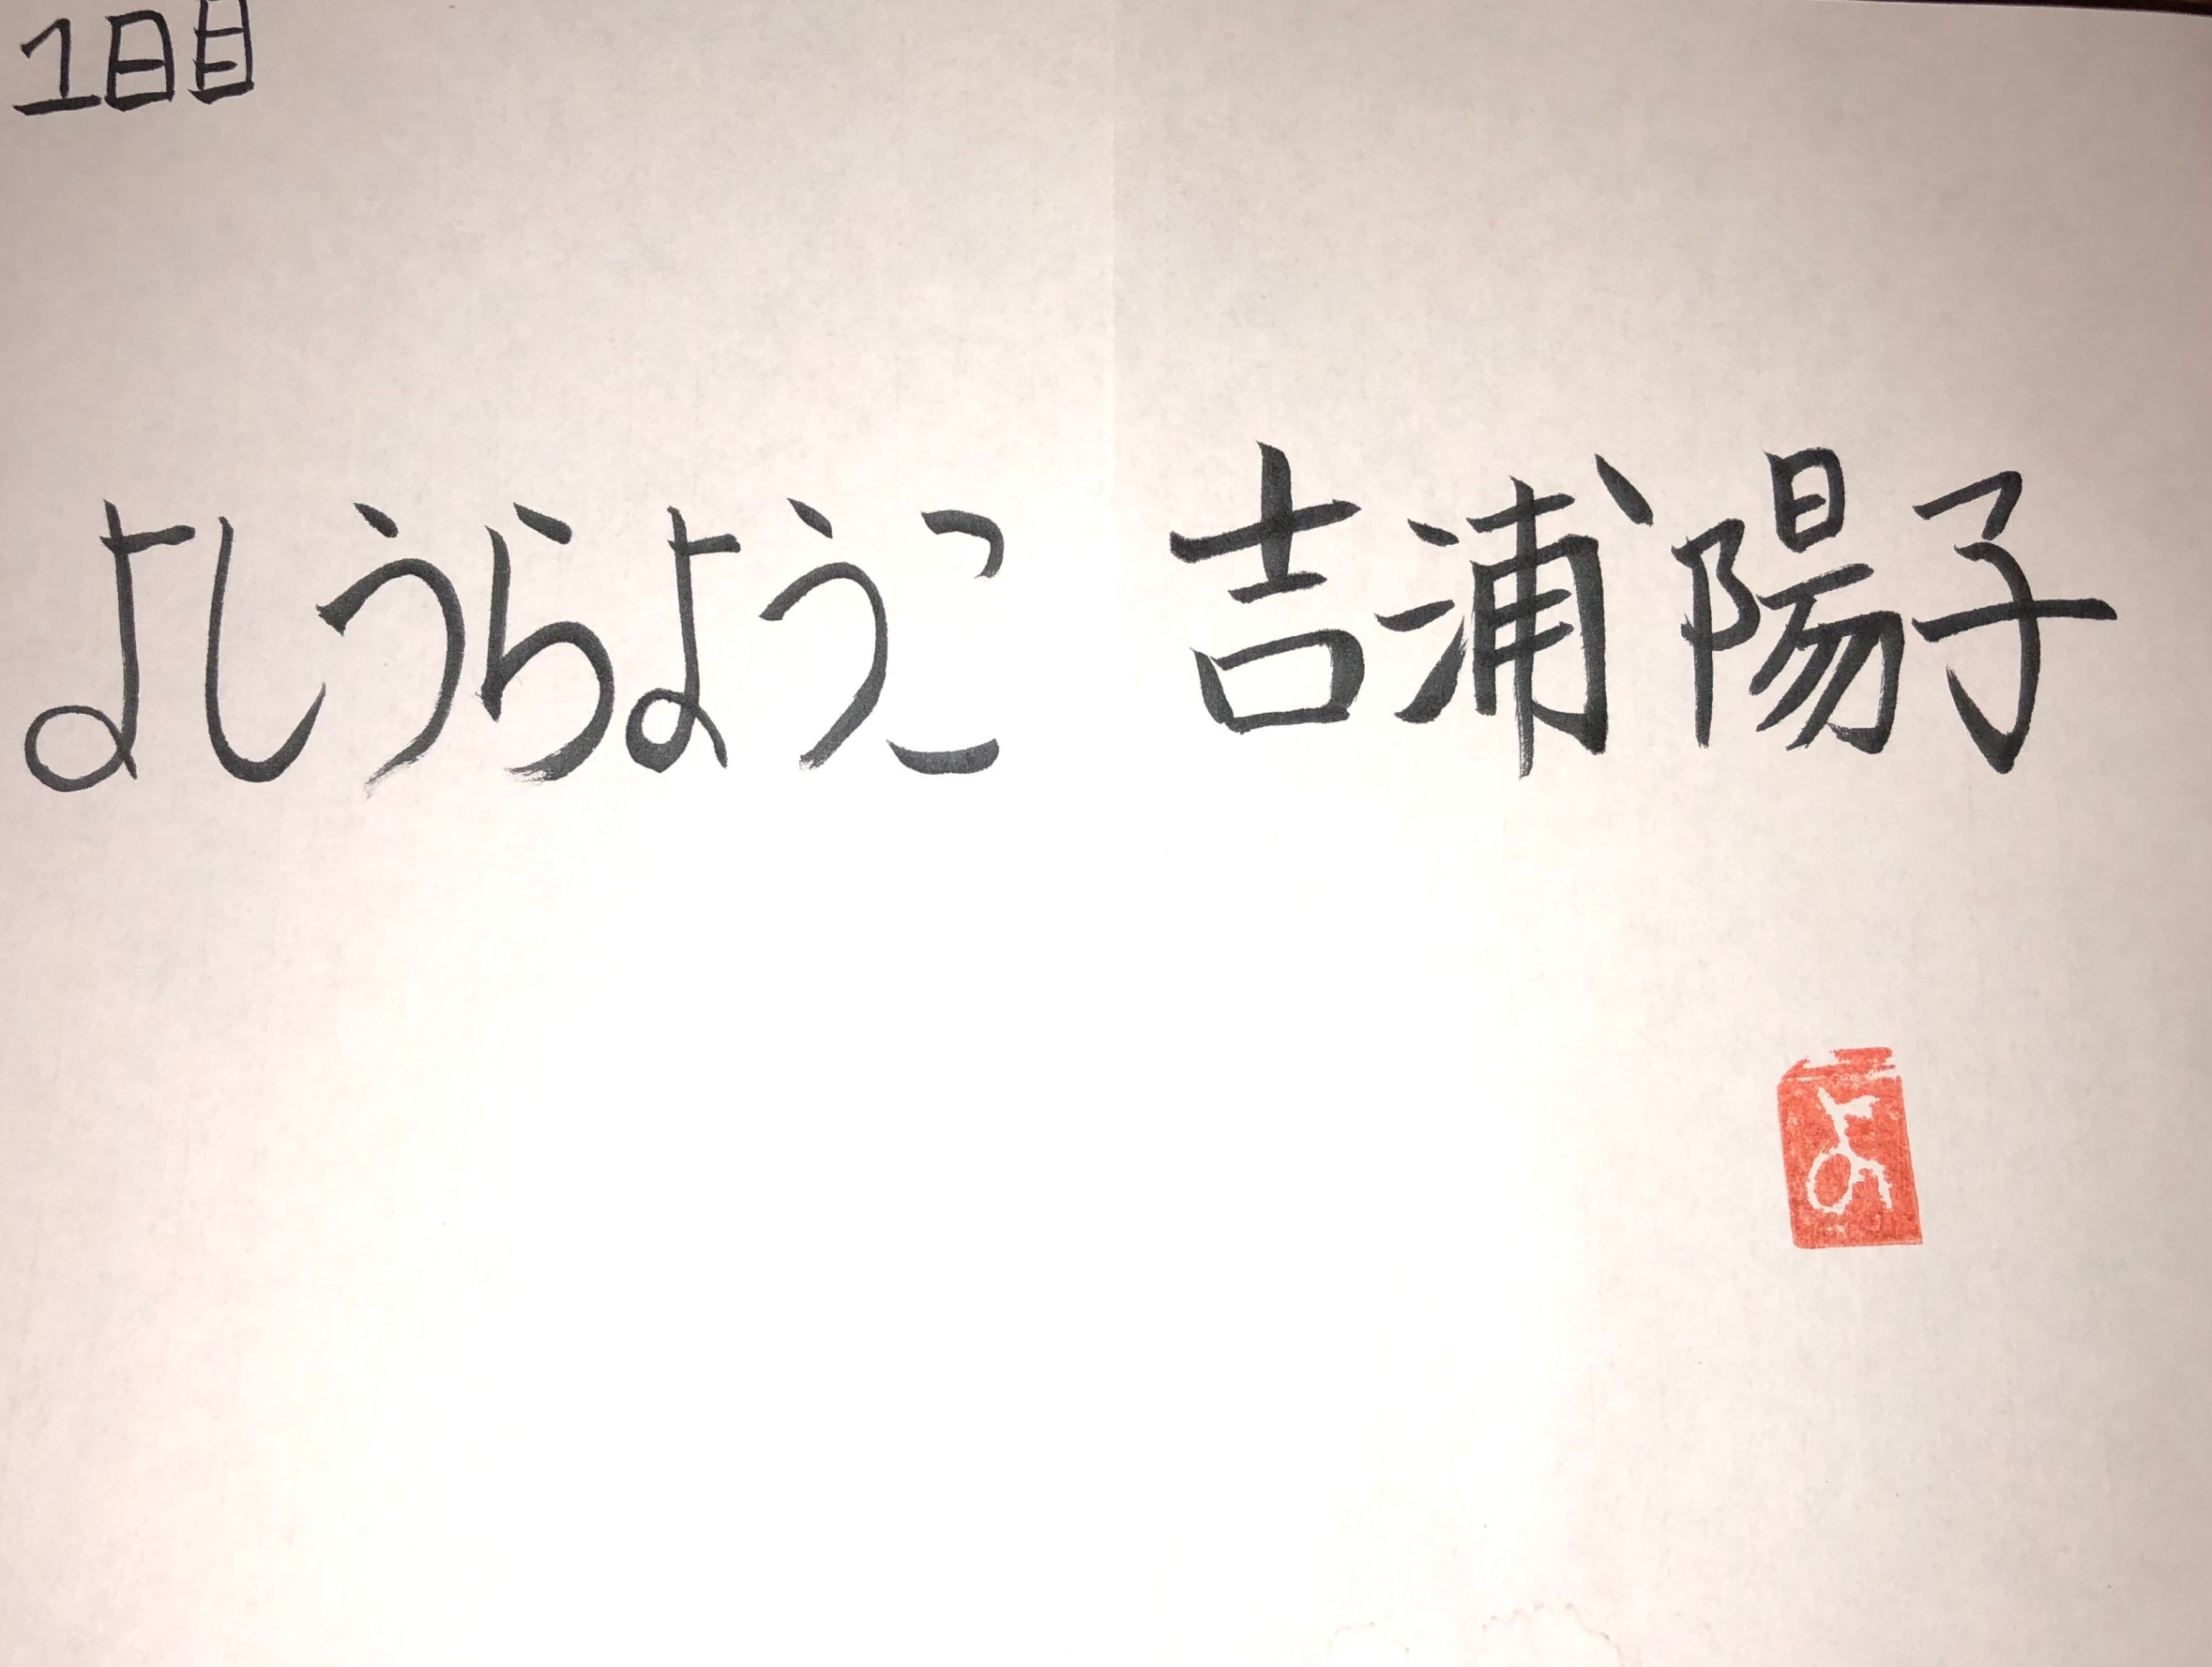 1日目
よしうらようこ 吉浦陽子
よ